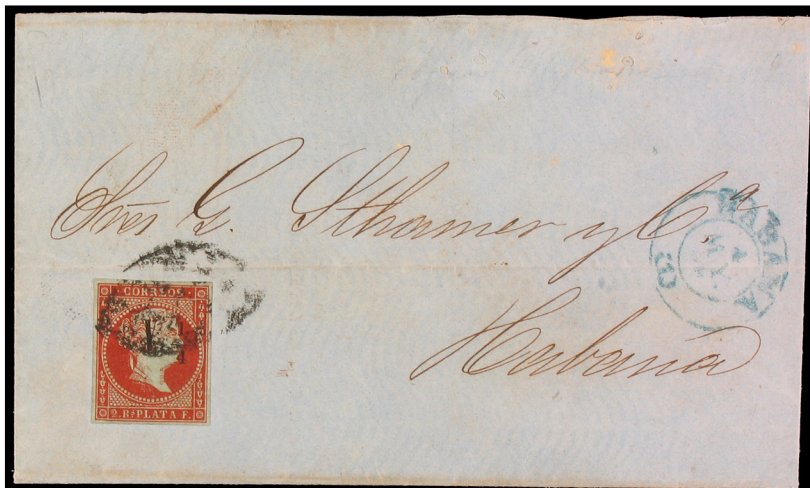 Sres G. Sthamer y Cª
Habana
HABANA
CORREOS.
Y 1/4
2. Rˢ PLATA F.